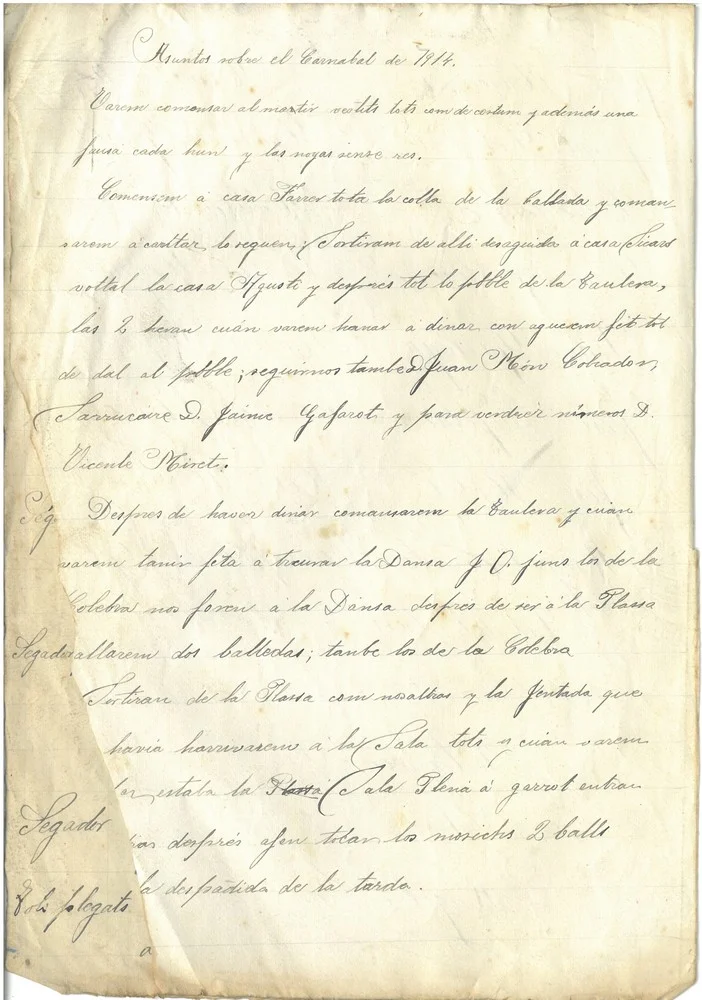 Asuntos sobre el Carnabal de 1914.
Varem comensar al mastir vestits tots com de costum y además una
faxsa cada hun y las noyas sense res.
Comensem á casa Farrer tota la colla de la ballada y coman
sarem á caltar lo seguen; Sortiram de alli desaguida á casa Sicars
voltal la casa Agusti y després tot lo pobble de la Taulera,
las 2 heran cuan varem hanar á dinar con aguerem fet tot
de dal al pobble; seguirnos tambe D. Juan Món Cobrador,
Sarrucaire D. Jaime Gafarot y para vendrer números D.
Vicente Miret.
Seg Despres de haver dinar comansarem la Taulera y cuan
varem tanir feta á trcurar la Dansa J O. juns los de la
Colebra nos foren á la Dansa despres de ser á la Plassa
Segador allarem dos balledas; tanbe los de la Colebra
Sortiran de la Plassa com nosaltros y la Jentada que
havia harrivarem á la Sala tots y cuan varem
estaba la Plassa Sala Plena á garrot entran
Segador
després afen tocar los mosichs 2 balls
la despadida de la tarda.
plegats
a